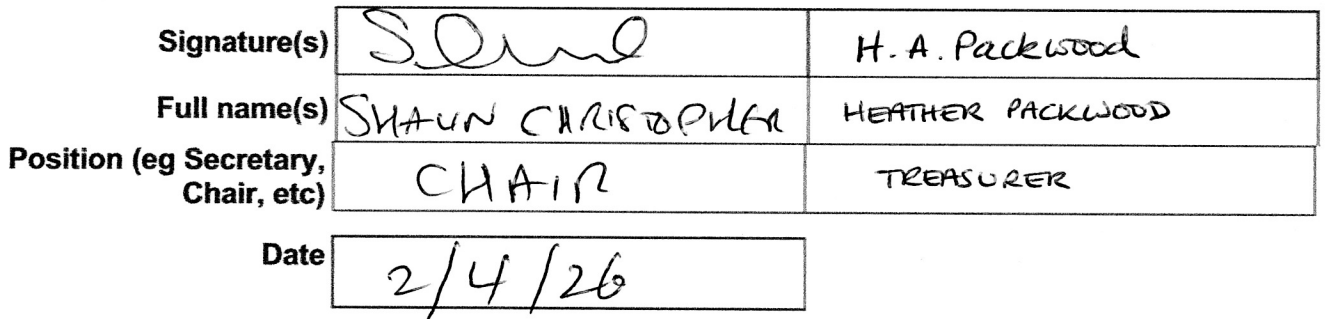 Signature(s) H. A. Packwood
Full name(s) SHAUN CHRISTOPHER HEATHER PACKWOOD
Position (eg Secretary,
Chair, etc) CHAIR TREASURER
Date 2/4/26